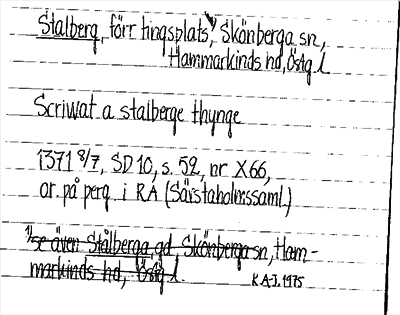 Stalberg, förr tingsplats,¹⁾ Skönberga sn,
Hammarkinds hd, Östg. l.
Scriwat a stalberge thynge
1371 8/7, SD 10, s. 52, nr X66,
or. på perg. i RA (Säfstaholmssaml.)
1) se även Stålberga, gd, Skönberga sn, Ham-
markinds hd, Östg l.
K A-I. 1975